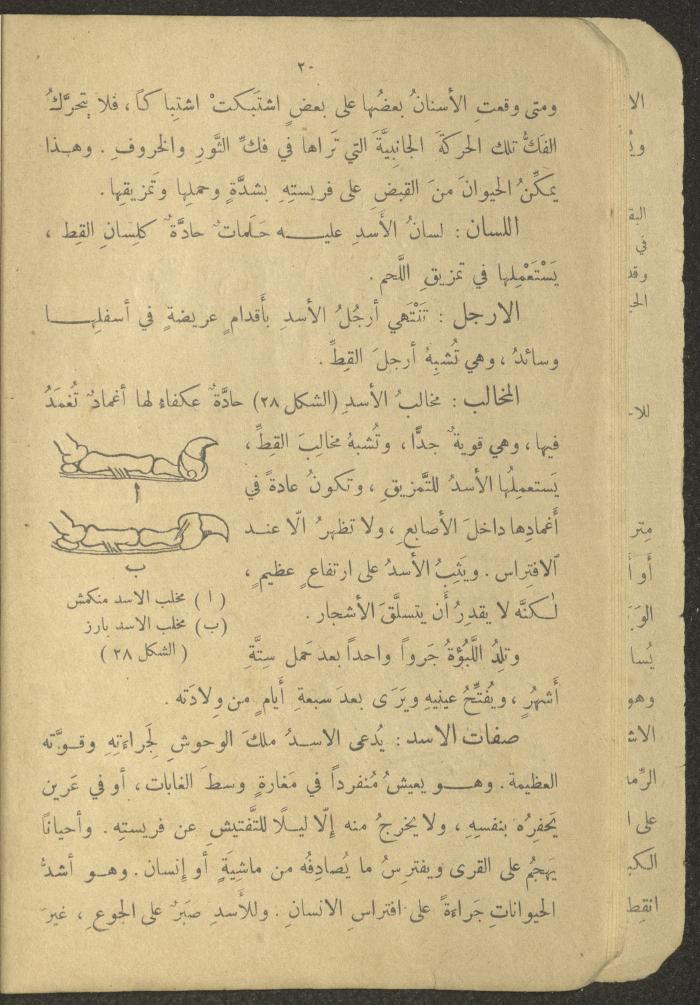 ٢٠
ومتى وقعتِ الأسنانُ بعضُها على بعضٍ اشتَبكتْ اشتِباكاً ، فلا يتحرَّكُ
الفَكُّ تلك الحركةَ الجانِبيَّةَ التي تَراها في فكِّ الثَّورِ والخروفِ . وهـذا
يمكِّنُ الحيوانَ منَ القبضِ على فريستِهِ بشدَّةٍ وحملِها وتَمزيقِها .
اللسان : لسانُ الأَسدِ عليـه حَلَماتٌ حادَّةٌ كلِسانِ القِط ،
يَسْتَعْمِلها في تمزيقِ اللَّحم .
الارجل : تَنْتَهي أرجُلُ الأسدِ بأَقدامٍ عريضةٍ في أسفلِهـا
وسائدُ ، وهي تُشبِهُ أرجلَ القِطِّ .
المخالب : مخالبُ الأَسدِ (الشكل ٢٨) حادَّةٌ عكفاء لها أغمادٌ تُغمَدُ
فيها ، وهي قويةٌ جدًّا ، وتُشبهُ مخالبَ القِطِّ ،
يَستعمِلُها الأسدُ للتَّمزيقِ ، وتكونُ عادةً في
أَغمادِها داخلَ الأصابعِ ، ولا تظهرُ الّا عنـد
الافتِراس . ويَثِبُ الأسدُ على ارتفاعٍ عظيمٍ ،
لـكنَّه لا يقدِرُ أَن يتسلَّقَ الأشجار .
وتلِدُ اللَّبُؤةُ جَرواً واحداً بعد حَمل ستَّةِ
أَشهُرٍ ، ويُفتِّحُ عينيهِ ويَرَى بعدَ سبعةِ أَيامٍ من وِلادَته .
صفات الاسد : يُدعى الاسـدُ ملكَ الوحوشِ لِجَراءتِهِ وقـوَّته
العظيمة . وهــو يعيشُ مُنفرداً في مَغارةٍ وسطَ الغابات ، أو في عَرين
يَحفِرُه بنفسِهِ ، ولا يخرجُ منه إلّا ليلًا للتَّفتيشِ عن فريستِه . وأحياناً
يَهجمُ على القرى ويفترِسُ ما يُصادِفُه من ماشيَةٍ أو إنسان . وهـو أشدُّ
الحيواناتِ جَراءةً على افتراسِ الانسانِ . وللأَسدِ صَبرٌ على الجوعِ ، غيرَ
ا
ب
( ا ) مخلب الاسد منكمش
(ب) مخلب الاسد بارز
( الشكل ٢٨ )
الا
البق
في
وقد
للا
متر
أو أ
يُسا
وهو
الاش
الرِّما
على ا
الكبي
انقِط